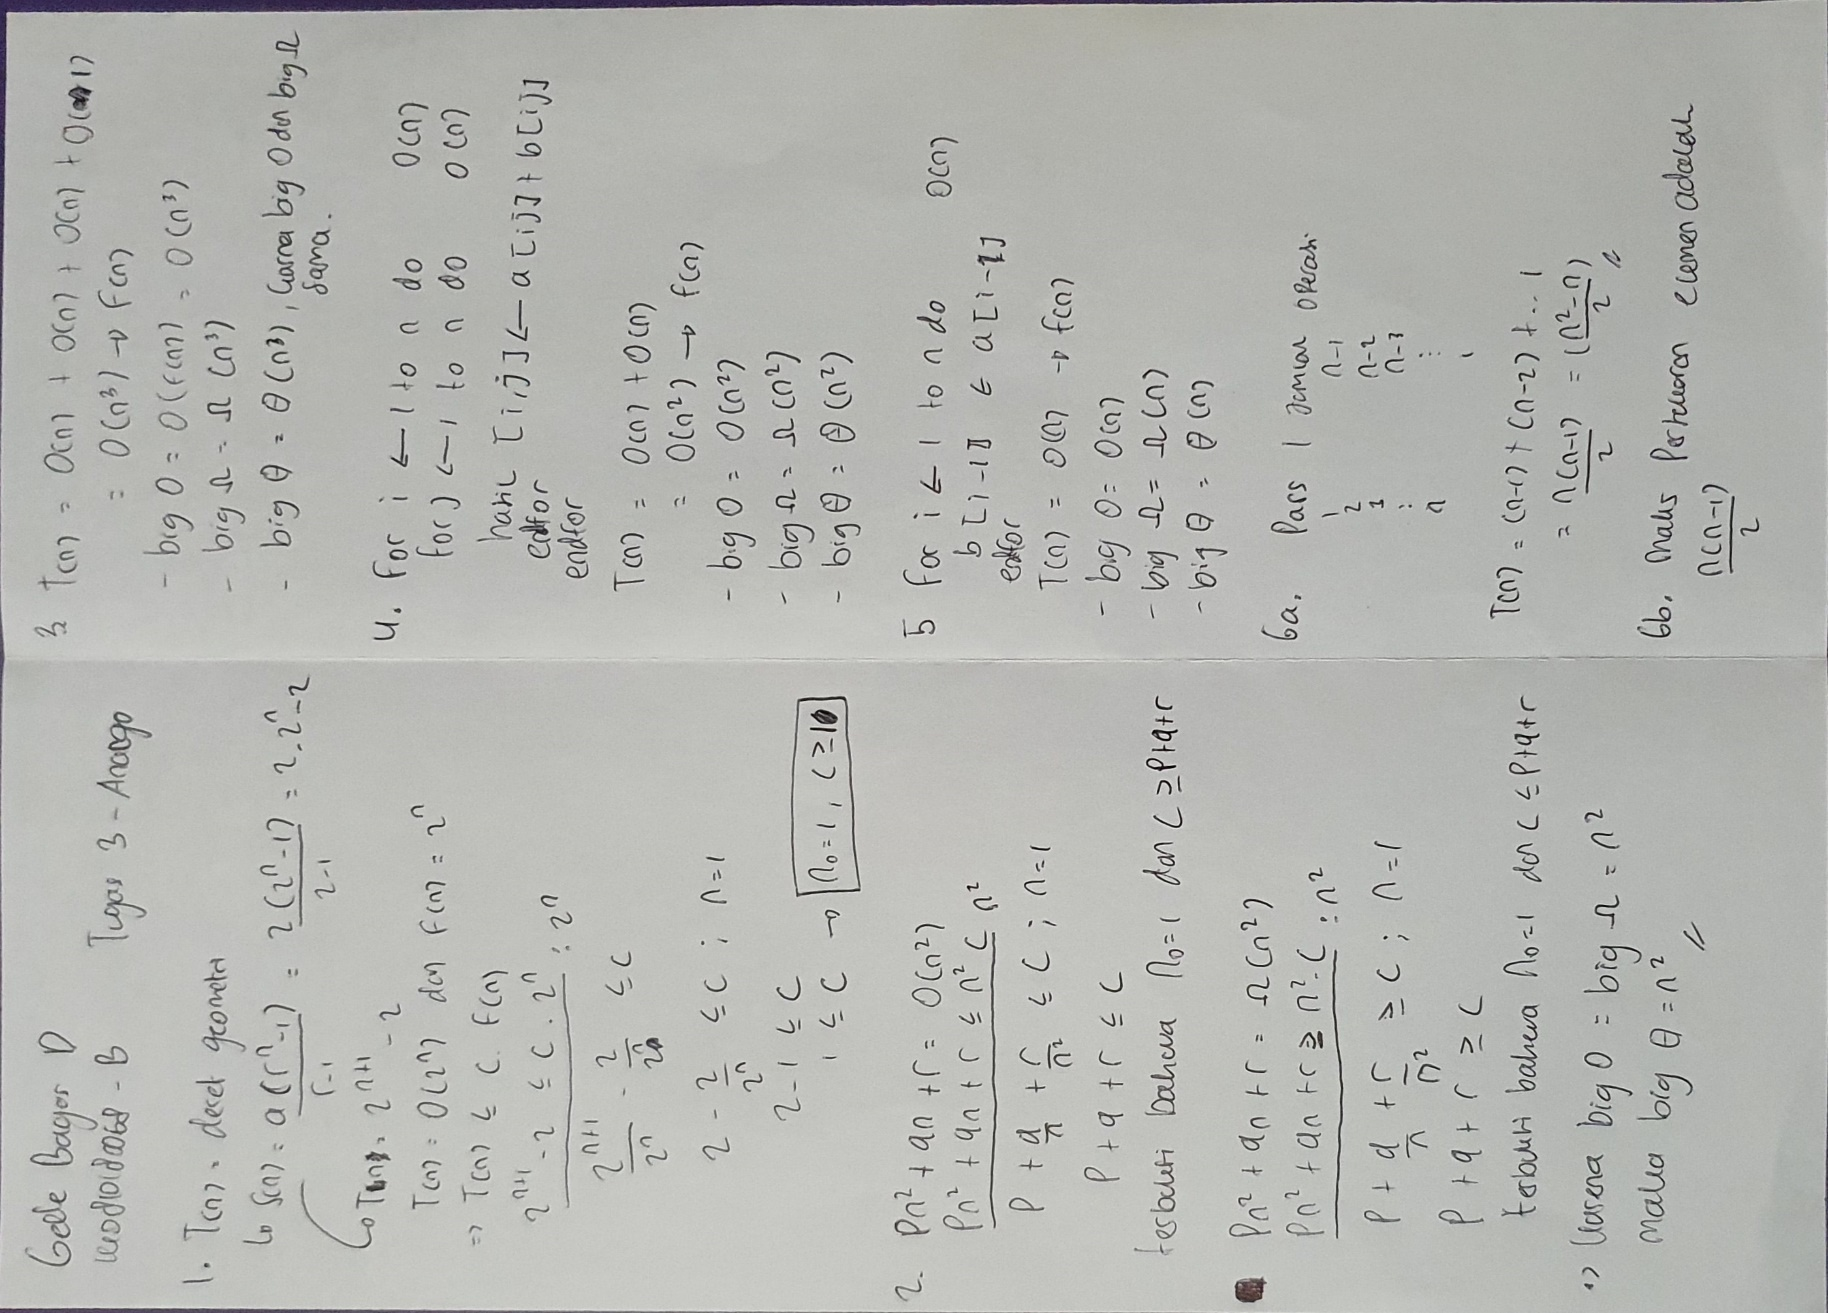 Gede Bagas D
Tugas 3 - Analgo
1. T(n) = deret geometri
↳ S(n) = a(rⁿ-1)/r-1 = 2(2ⁿ-1)/2-1 = 2.2ⁿ-2
↳ T(n) = 2ⁿ⁺¹ - 2
T(n) = O(2ⁿ) dan f(n) = 2ⁿ
=> T(n) ≤ C. f(n)
2ⁿ⁺¹ - 2 ≤ C. 2ⁿ : 2ⁿ
2ⁿ⁺¹/2ⁿ - 2/2ⁿ ≤ C
2 - 2/2ⁿ ≤ C ; n=1
2 - 1 ≤ C
1 ≤ C → n₀=1, C≥1
2. Pn² + qn + r = O(n²)
Pn² + qn + r ≤ n² C n²
P + q/n + r/n² ≤ C ; n=1
P + q + r ≤ C
terbukti bahwa n₀=1 dan C ≥ P+q+r
Pn² + qn + r = Ω(n²)
Pn² + qn + r ≥ n². C : n²
P + q/n + r/n² ≥ C ; n=1
P + q + r ≥ C
terbukti bahwa n₀=1 dan C ≤ P+q+r
=> karena big O = big Ω = n²
maka big θ = n²
3. T(n) = O(n) + O(n) + O(n) + O(1)
= O(n³) → f(n)
- big O = O(f(n)) = O(n³)
- big Ω = Ω(n³)
- big θ = θ(n³), karna big O dan big Ω
sama.
4. for i ← 1 to n do O(n)
for j ← 1 to n do O(n)
hasil [i,j] ← a[ij] + b[ij]
endfor
endfor
T(n) = O(n) + O(n)
= O(n²) → f(n)
- big O = O(n²)
- big Ω = Ω(n²)
- big θ = θ(n²)
5 for i ← 1 to n do O(n)
b[i-1] ← a[i-1]
endfor
T(n) = O(n) → f(n)
- big O = O(n)
- big Ω = Ω(n)
- big θ = θ(n)
6a. Pass | Jumlah operasi
1 n-1
2 n-2
3 n-3
⋮ ⋮
n 1
T(n) = (n-1) + (n-2) + .. 1
= n(n-1)/2 = (n²-n)/2
6b. Maks Pertukaran elemen adalah
n(n-1)/2